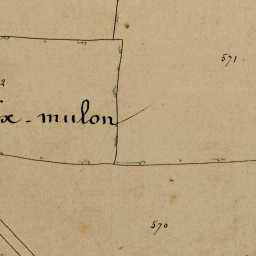 571
2
x - mulon
570